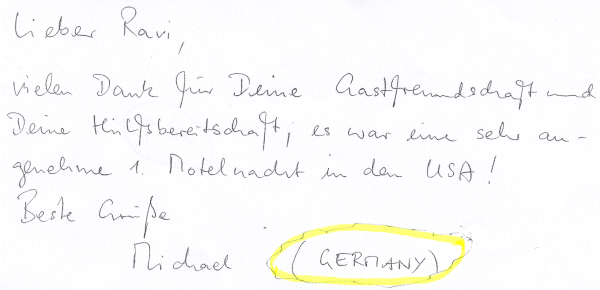 Lieber Ravi,
vielen Dank für Deine Gastfreundschaft und
Deine Hilfsbereitschaft, es war eine sehr an-
genehme 1. Motelnacht in den USA!
Beste Grüße
Michael (GERMANY)